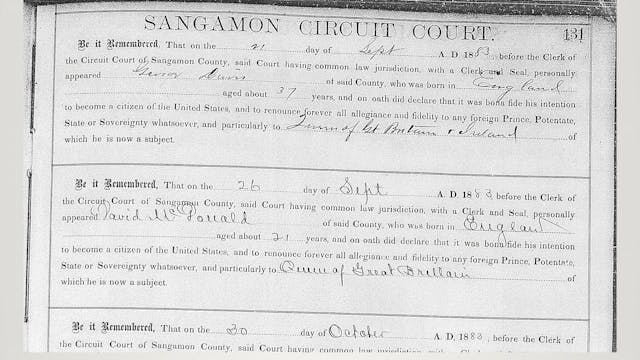 SANGAMON CIRCUIT COURT. 131
Be it Remembered, That on the 21 day of Sept A. D. 1883, before the Clerk of
the Circuit Court of Sangamon County, said Court having common law jurisdiction, with a Clerk and Seal, personally
appeared Davis of said County, who was born in England
aged about 37 years, and on oath did declare that it was bona fide his intention
to become a citizen of the United States, and to renounce forever all allegiance and fidelity to any foreign Prince, Potentate,
State or Sovereignty whatsoever, and particularly to of Gt Britain & Ireland of
which he is now a subject.
Be it Remembered, That on the 26 day of Sept A. D. 1883 before the Clerk of
the Circuit Court of Sangamon County, said Court having common law jurisdiction, with a Clerk and Seal, personally
appeared David of said County, who was born in England
aged about 21 years, and on oath did declare that it was bona fide his intention
to become a citizen of the United States, and to renounce forever all allegiance and fidelity to any foreign Prince, Potentate,
State or Sovereignty whatsoever, and particularly to of Great Brittain of
which he is now a subject.
Be it Remembered, That on the 30 day of October A. D. 1883, before the Clerk of
the Circuit Court of Sangamon County, said Court having common law jurisdiction, with a Clerk